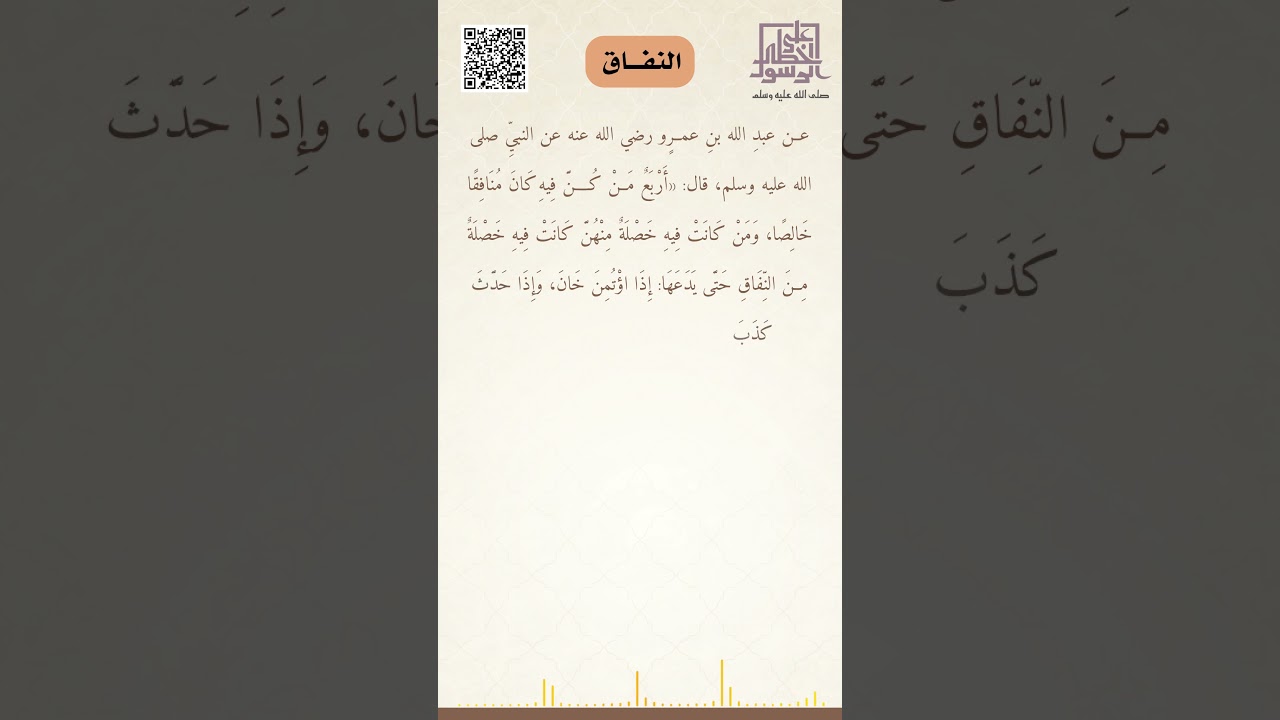 النفـاق
على خطى الرسول
صلى الله عليه وسلم
عـن عبدِ الله بنِ عمـرٍو رضي الله عنه عن النبيِّ صلى
الله عليه وسلم، قال: «أَرْبَعٌ مَـنْ كُـــنَّ فِيهِ كَانَ مُنَافِقًا
خَالِصًا، وَمَنْ كَانَتْ فِيهِ خَصْلَةٌ مِنْهُنَّ كَانَتْ فِيهِ خَصْلَةٌ
مِـنَ النِّفَاقِ حَتَّى يَدَعَهَا: إِذَا اؤْتُمِنَ خَانَ، وَإِذَا حَدَّثَ
كَذَبَ
مِـنَ النِّفَاقِ حَتَّى
خَانَ، وَإِذَا حَدَّثَ
كَذَبَ